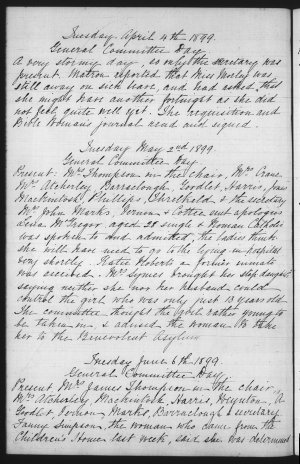 Tuesday April 4th 1899.
General Committee Day
A very stormy day, so only the secretary was
present. Matron reported that Miss Morley was
still away on sick leave, and had asked that
she might have another fortnight as she did
not feel quite well yet. The requisition and
Bible Woman's journal read and signed.
Tuesday May 2nd 1899
General Committee Day
Present Mrs Thompson in the chair, Mrs Crane
Mrs Atcherley, Barraclough, Goodlet, Harris, Jas
Mackintosh, Phillips, Threlkeld & the secretary
Mrs John Marks, Vernon & Cottee sent apologies
Lena McGregor aged 28 single & Roman Catholic
was spoken to and admitted, the ladies think
she will have need to go to the lying in hospital
very shortly. Katie Roberts a former inmate
was received. Mrs Symes brought her step daughter
saying neither she nor her husband could
control the girl who was only just 13 years old
The committee thought the girl rather young to
be taken in & advised the woman to take
her to the Benevolent Asylum
Tuesday June 6th 1899.
General Committee Day
Present Mrs James Thompson in the chair,
Mrs Atcherley, Mackintosh, Harris, Heynton, A
Goodlet, Vernon, Marks, Barraclough & secretary
Fanny Simpson, the woman who came from the
Children's Home last week, said she was determined